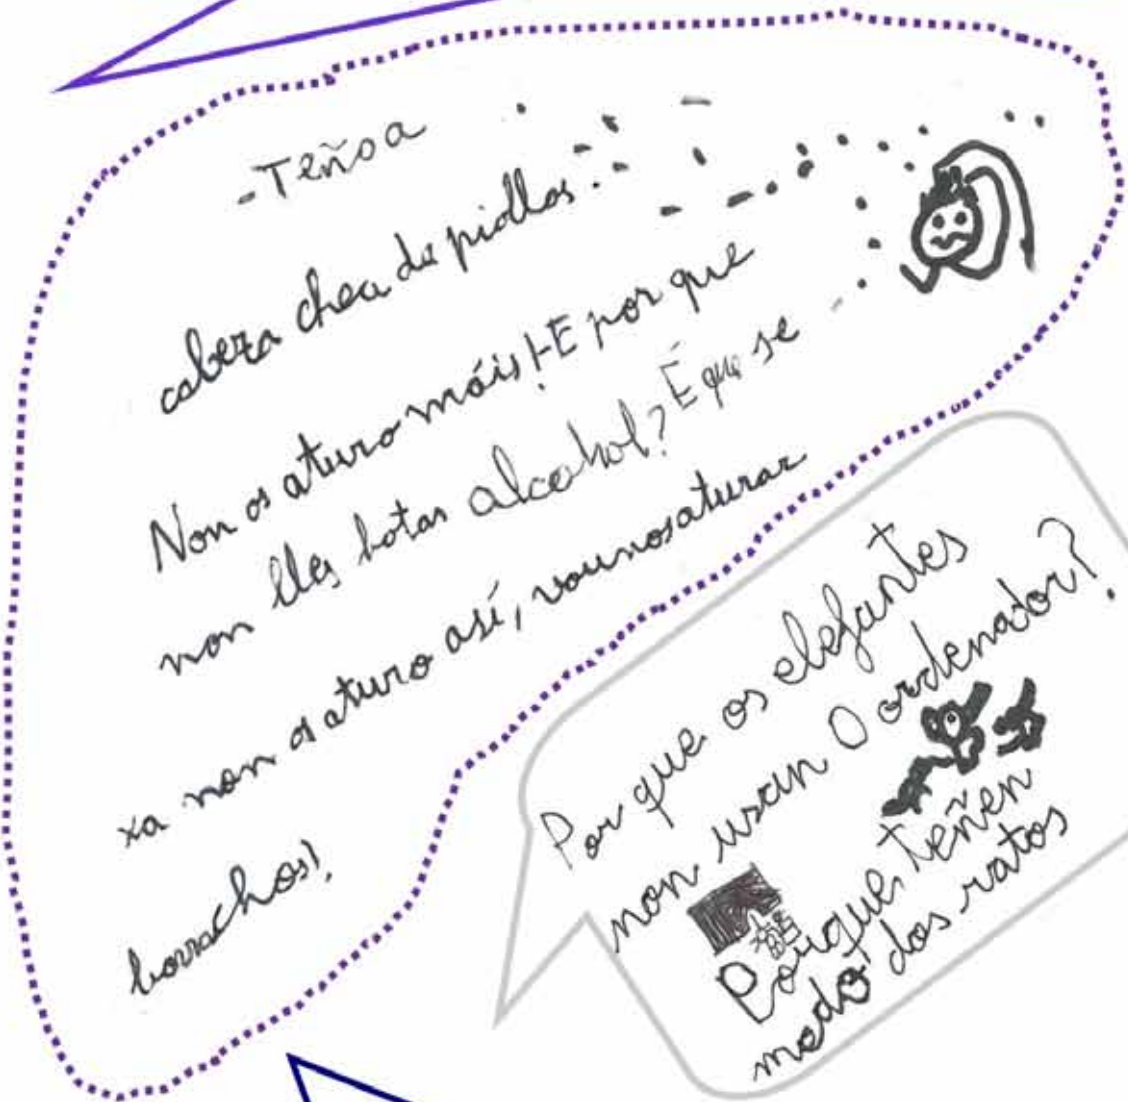 -Teño a
cabeza chea de piollos.
Non os aturo máis!-E por que
non lles botas alcohol? É que se
xa non os aturo así, vounosaturar
borrachos!
Por que os elefantes
non usan O ordenador?
Porque teñen
medo dos ratos